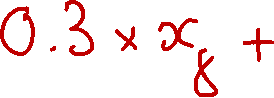 0.3 × x₈ +